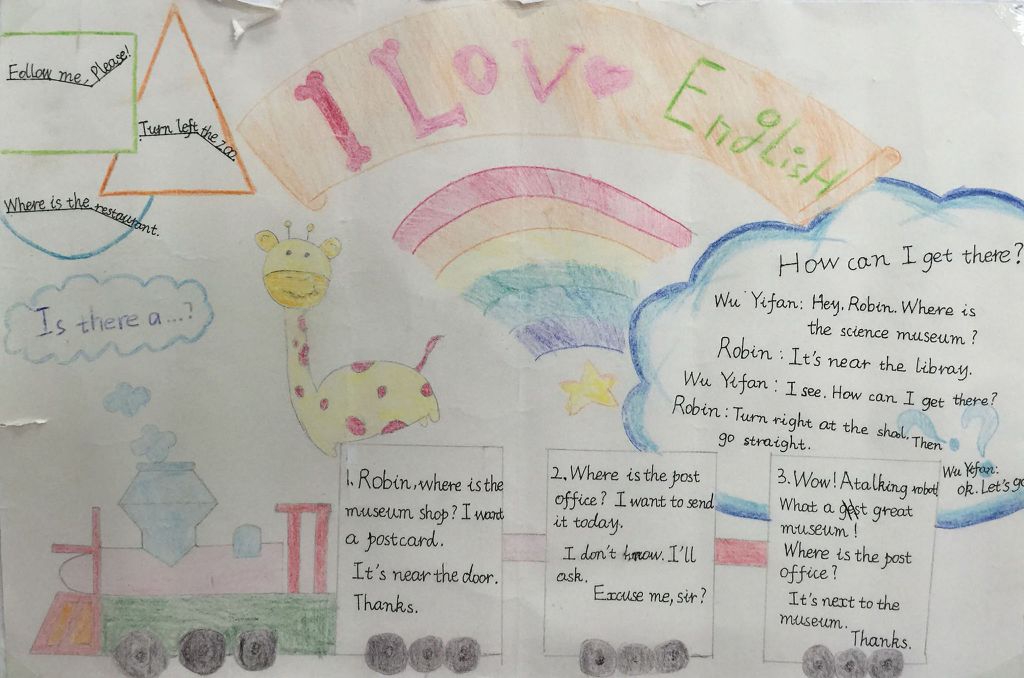 I Love English
Follow me, Please!
Turn left the zoo.
Where is the restaurant.
Is there a...?
How can I get there?
Wu Yifan: Hey, Robin. Where is
the science museum?
Robin: It's near the libray.
Wu Yifan: I see. How can I get there?
Robin: Turn right at the shool. Then
go straight.
Wu Yifan:
ok. Let's go
1. Robin, where is the
museum shop? I want
a postcard.
It's near the door.
Thanks.
2. Where is the post
office? I want to send
it today.
I don't know. I'll
ask.
Excuse me, sir?
3. Wow! A talking robot!
What a great
museum!
Where is the post
office?
It's next to the
museum.
Thanks.